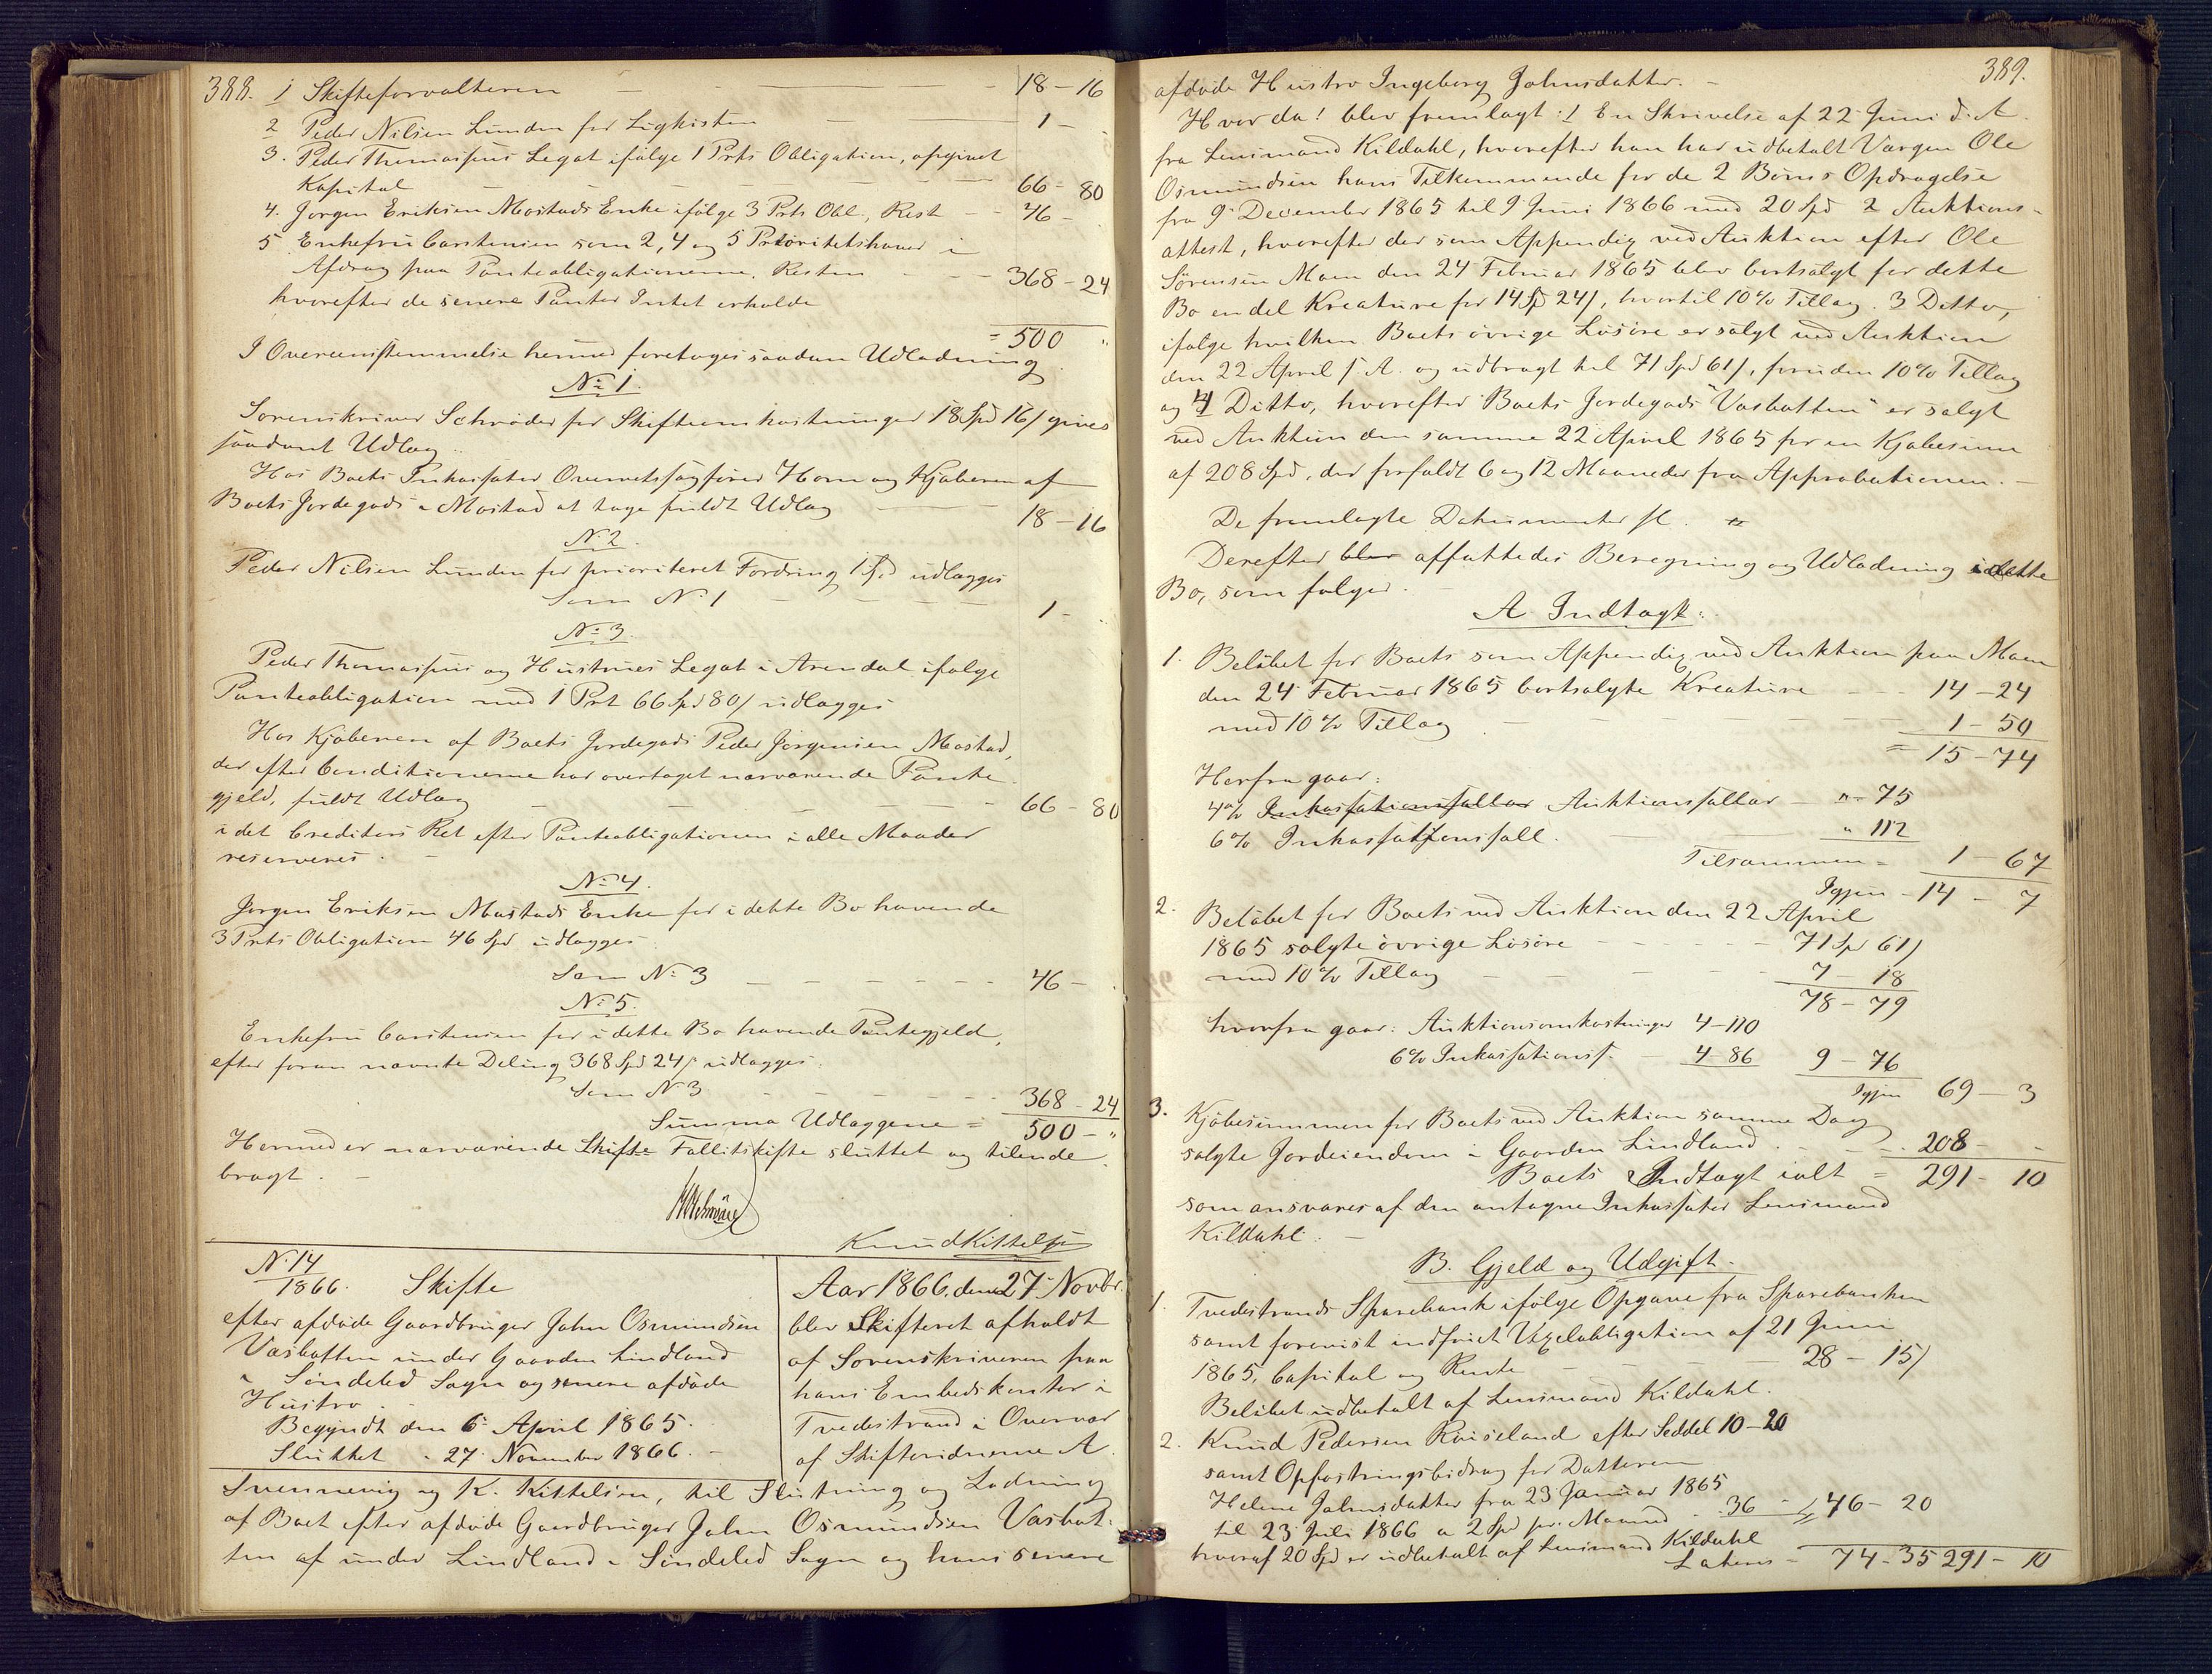 388. 1 Skifteforvalteren — 18 - 16
2 Peder Nilsen Lunden for Ligkisten — 1 -
3. Peder Thomassens Legat ifølge 1 Prts Obligation, afgivet
Kapital — 66 - 80
4. Jørgen Eriksen Mostads Enke ifølge 3 Prts Obl., Rest — 46 -
5 Enkefru Carstensen som 2, 4 og 5 Prioritetshaver i
Afdrag paa Panteobligationerne, Resten — 368 - 24
hvorefter de senere Panter Intet erholde
= 500 "
I Overeensstemmelse hermed foretages saadan Udlodning
No 1.
Sorenskriver Schrøder for Skifteomkostninger 18 Spd 16 / gives
saadant Udlæg.
Hos Boets Inkassator Overretssagfører Horn og Kjøberen af
Boets Jordegods i Mostad at tage fuldt Udlæg — 18 - 16
No 2.
Peder Nilsen Lunden for prioriteret Fordring 1 Spd udlægges
Som No 1 — 1 -
No 3.
Peder Thomassens og Hustrues Legat i Arendal ifølge
Panteobligation med 1 Prt 66 Spd 80 / udlægges
Hos Kjøberen af Boets Jordegods Peder Jørgensen Mostad,
der efter Conditionerne har overtaget nærværende Pante-
gjeld, fuldt Udlæg — 66 - 80
i det Creditors Ret efter Panteobligationen i alle Maader
reserveres. —
No 4.
Jørgen Eriksen Mostads Enke for i dette Bo havende
3 Prts Obligation 46 Spd udlægges
Som No 3 — 46 -
No 5.
Enkefru Carstensen for i dette Bo havende Pantegjeld,
efter foran nævnte Deling 368 Spd 24 / udlægges
Som No 3 — 368 - 24
Summa Udlæggene = 500 - "
Hermed er nærværende Skifte Fallitskifte sluttet og tilende-
bragt. —
Knud Kittelsen
No 14
1866. Skifte
efter afdøde Gaardbruger John Osmundsen
Vasbotten under Gaarden Lindland
i Søndeled Sogn og senere afdøde
Hustro.
Begyndt den 6 April 1865.
Sluttet - 27 November 1866. —
Aar 1866, den 27 Novbr.
blev Skifteret afholdt
af Sorenskriveren paa
hans Embedskontor i
Tvedestrand i Overvær
af Skiftevidnerne A.
Svennevig og K. Kittelsen, til Slutning og Lodning
af Boet efter afdøde Gaardbruger John Osmundsen Vasbot-
ten af under Lindland i Søndeled Sogn og hans senere
389.
afdøde Hustro Ingeborg Johnsdatter. —
Hvor da! blev fremlagt: 1 En Skrivelse af 22 Juni d. A.
fra Lensmand Kildahl, hvorefter han har udbetalt Værgen Ole
Osmundsen hans Tilkommende for de 2 Børns Opdragelse
fra 9 December 1865 til 9 Juni 1866 med 20 Spd 2 Auktions-
attest, hvorefter der som Appendix ved Auktion efter Ole
Sørensen Moen den 24 Februar 1865 blev bortsolgt for dette
Bo en del Kreature for 14 Spd 24 /, hvortil 10 % Tillæg. 3 Ditto,
ifølge hvilken Boets øvrige Løsøre er solgt ved Auktion
den 22 April f. A. og udbragt til 71 Spd 61 /, foruden 10 % Tillæg
og 4 Ditto, hvorefter Boets Jordegods "Vasbotten" er solgt
ved Auktion den samme 22 April 1865 for en Kjøbesum
af 208 Spd, der forfaldt 6 og 12 Maaneder fra Approbationen. —
De fremlagte Dokumenter fl.
Derefter blev affattedes Beregning og Udlodning i dette
Bo, som følger. —
A Indtægt:
1. Beløbet for Boets som Appendix ved Auktion paa Moen
den 24 Februar 1865 bortsolgte Kreature — 14 - 24
med 10 % Tillæg — 1 - 50
= 15 - 74
Herfra gaar:
4 % Inkassationssallær Auktionssallær " - 75
6 % Inkassationssall. — " 112
Tilsammen = 1 - 67
Igjen - 14 - 7
2. Beløbet for Boets ved Auktion den 22 April
1865 solgte øvrige Løsøre — 71 Spd 61 /
med 10 % Tillæg — 7 - 18
78 - 79
hvorfra gaar: Auktionsomkostninger 4 - 110
6 % Inkassationss. — 4 - 86 9 - 76
Igjen 69 - 3
3. Kjøbesummen for Boets ved Auktion samme Dag
solgte Jordeiendom i Gaarden Lindland — 208 -
Boets Indtægt ialt = 291 - 10
som ansvares af den antagne Inkassator Lensmand
Kildahl. —
B. Gjeld og Udgift.
1. Tvedestrands Sparebank ifølge Opgave fra Sparebanken
samt forevist indfriet Vexelobligation af 21 Juni
1865, Capital og Rente — 28 - 15 /
Beløbet udbetalt af Lensmand Kildahl.
2. Knud Pedersen Røiseland efter Seddel 10 - 20
samt Opfostringsbidrag for Datteren
Helene Johnsdatter fra 23 Januar 1865
til 23 Juli 1866 a 2 Spd pr. Maaned - 36 - 46 - 20
hvoraf 20 Spd er udbetalt af Lensmand Kildahl
Latus = 74 - 35 291 - 10